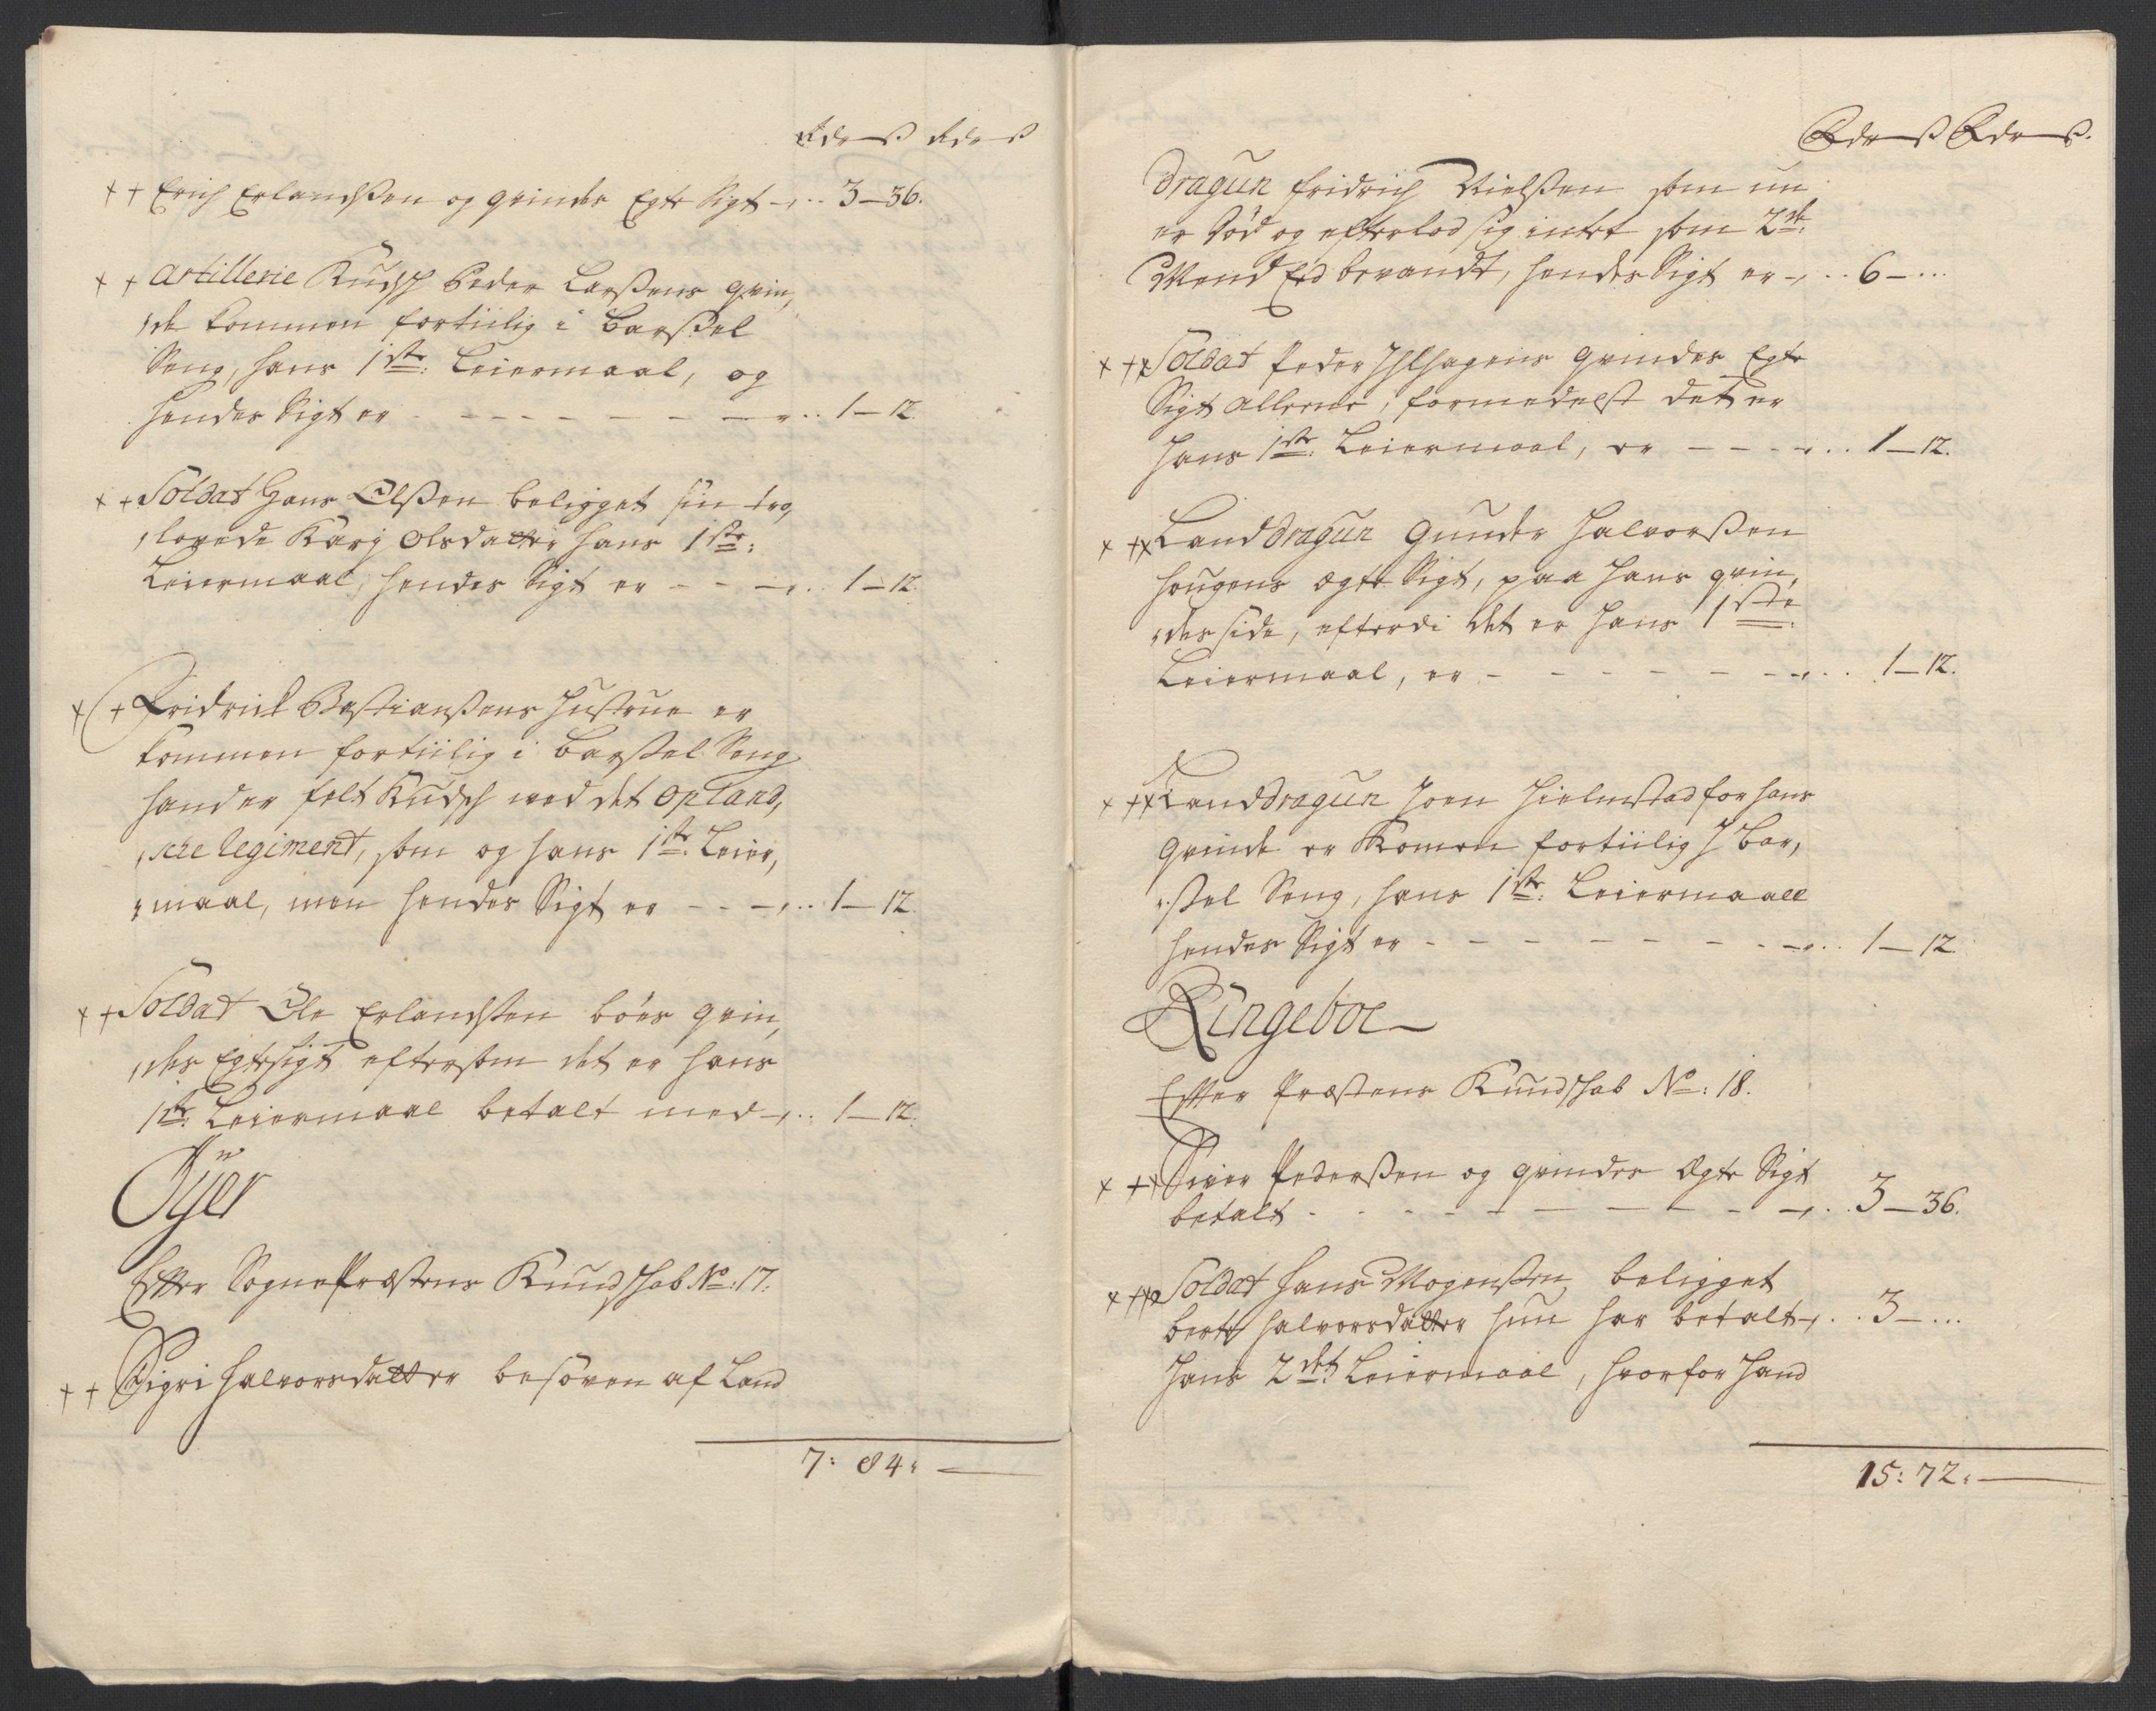 Rdr ß Rdr ß
++ Erich Erlandsßen og qvindes Egte Sigt -,.. 3–36.
++ Artillerie Kudsch Peder Larßens qvin,
,de kommen fortiilig i Barßel
Seng, hans 1ste: Leiermaal, og
hendes Sigt er - - - - - - - - ,.. 1–12
++ Soldat Hans Olßen beligget sin tro,
,lovede Karj Olsdatter hans 1ste:
Leiermaal, hendes Sigt er - - -,.. 1–12.
++ Fridrich Bastianßens Hustrue er
kommen fortiilig i Barßel Seng
hand er felt Kudsch ved det Opland,
,sche Regiment, som og hans 1ste: Leier,
,maal, men hendes Sigt er - - -,.. 1–12.
++ Soldat Ole Erlandsßen böes qvin,
,des Egtesigt eftersom det er hans
1ste: Leiermaal betalt med -,.. 1–12.
Öyer
Efter SognePræstens Kundschab No: 17.
++ Sigri Halvorsdatter besöven af Land
7: 84:
Rdr ß Rdr ß.
Dragun Fridrich Nielßen som nu
er död og efterlod sig intet som 2de:
Mend Eed bevandt, hendes Sigt er -,.. 6–...
+++ Soldat Peder Ihlhagens qvindes Egte
Sigt allerne, formedelst det er
Hans 1ste: Leiermaal, er - - - -,.. 1–12.
+++ Land Dragun Gunder Halvorßen
Hougens Egte Sigt, paa Hans qvin,
,des side, efterdi det er Hans 1ste:
Leiermaal, er - - - - - - -,.. 1–12.
+++ Land Dragun Joen Hielmstad for hans
qvinde er Komen fortiilig J Bar,
,ßel Seng, hans 1ste: Leiermaall
hendes Sigt er - - - - - - - -,.. 1–12
Ringeboe
Efter Præstens Kundschab No: 18.
+++ Siver Pederßen og qvindes Egte Sigt
betalt - - - - - - - - -,.. 3–36.
+++ Soldat Hans Mogenßen beligget
Berte Halvorsdatter hun har betalt -,.. 3–...
Hans 2det Leiermaal, hvorfor hand
15: 72: